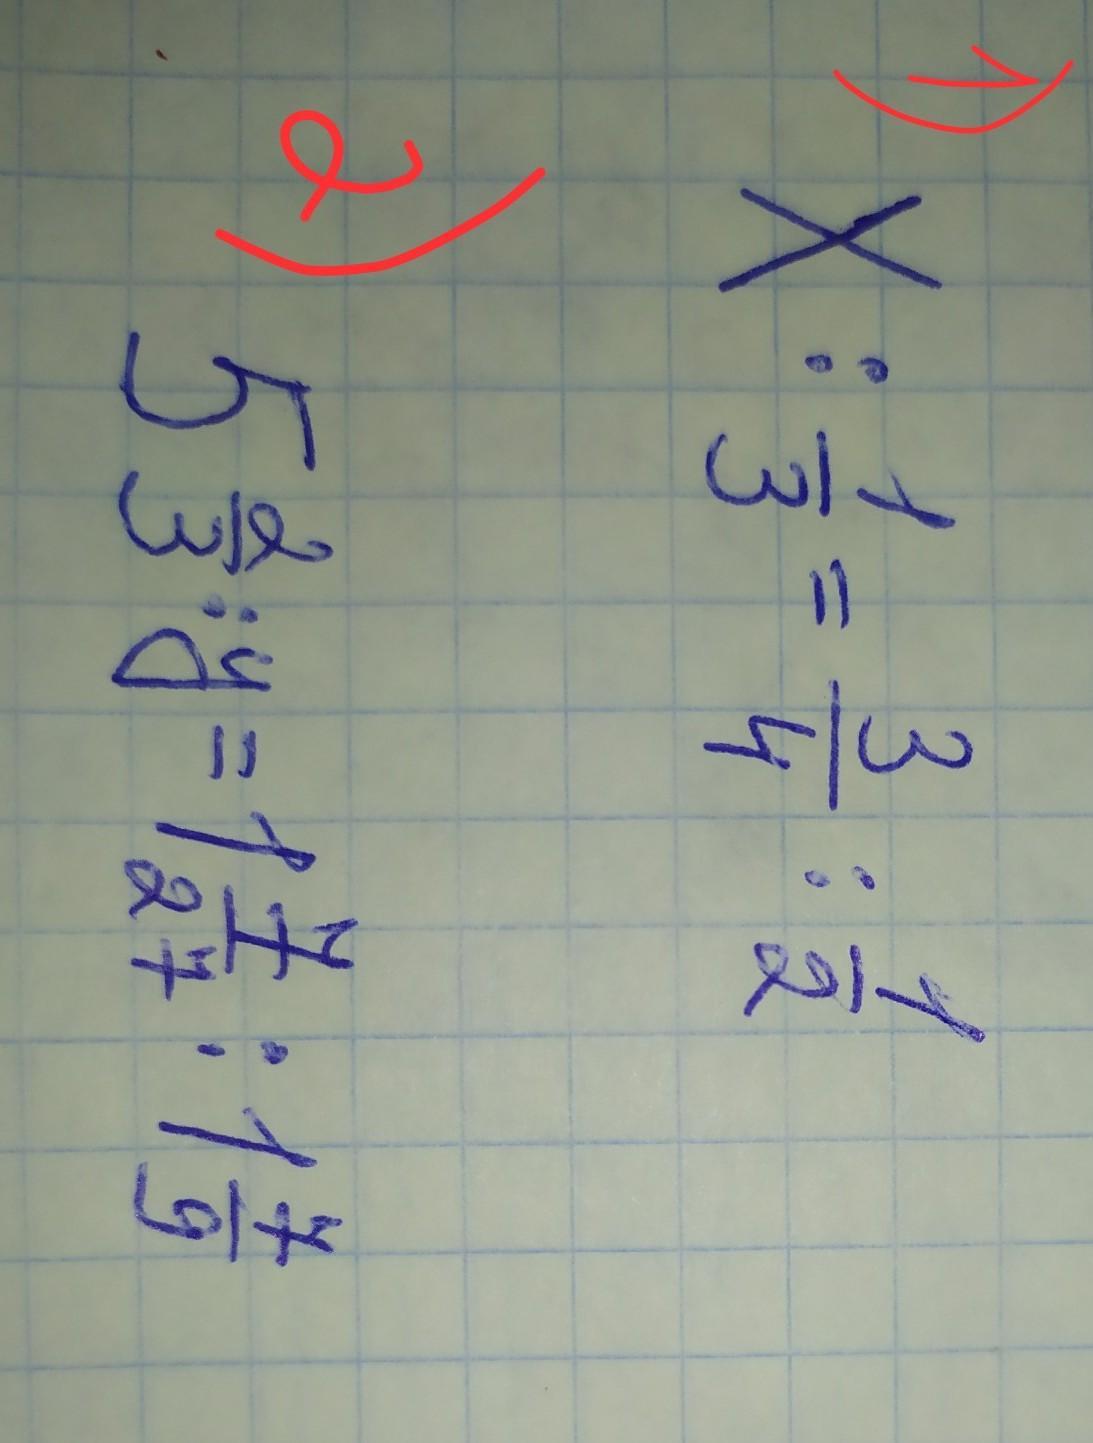 1)
X : 1/3 = 3/4 : 1/2
2)
5 2/3 : y = 1 7/27 : 1 7/9